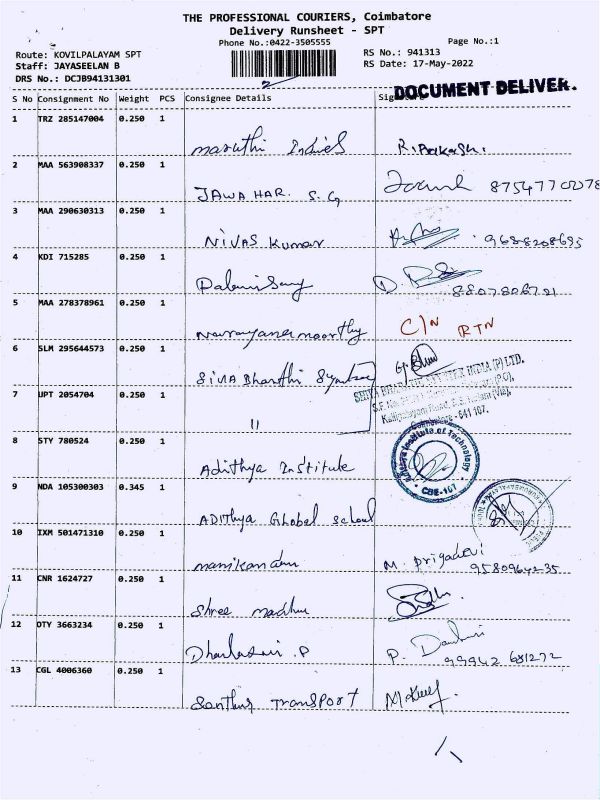 THE PROFESSIONAL COURIERS, Coimbatore
Delivery Runsheet - SPT
Phone No.:0422-3505555
Page No.:1
Route: KOVILPALAYAM SPT
RS No.: 941313
Staff: JAYASEELAN B
RS Date: 17-May-2022
DRS No.: DCJB94131301
2
DOCUMENT DELIVER.
S No Consignment No Weight PCS Consignee Details
1 TRZ 285147004 0.250 1
maruthi
2 MAA 563908337 0.250 1
JAWAHAR. S. G
3 MAA 290630313 0.250 1
NIVAS Kumar
4 KDI 715285 0.250 1
Palanisamy
5 MAA 278378961 0.250 1
Narayanamoorthy C/N RTN
6 SLM 295644573 0.250 1
SIVA Bharathi
7 UPT 2054704 0.250 1
"
8 STY 780524 0.250 1
Adithya Institute
9 NDA 105300303 0.345 1
ADITHya Ghlobal School
10 IXM 501471310 0.250 1
manikandan M. Priyadevi
11 CNR 1624727 0.250 1
Shree madhu
12 OTY 3663234 0.250 1
P.
99942 681272
13 CGL 4006360 0.250 1
TRANSPORT
INDIA (P) LTD.
641 107.
Institute of Technology
CBE-107